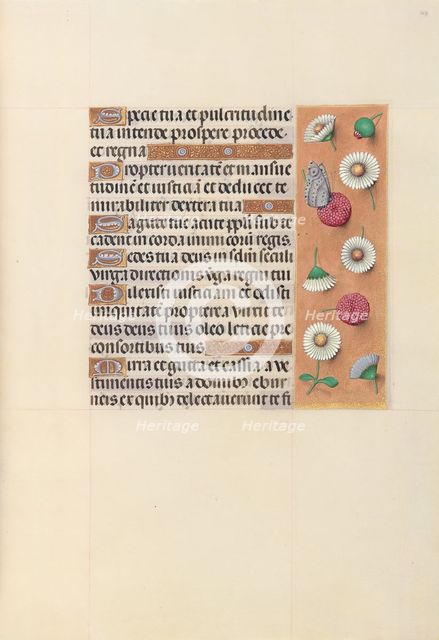 Specie tua et pulcritudine
tua intende prospere procede
et regna
Propter veritatē et mansue
tudinē et iusticiā et deducet te
mirabiliter dextera tua
Sagitte tue acute ppłi sub te
cadent in corda inimicorū regis.
Sedes tua deus in sclm seculi
virga directionis vga regni tui
Dilexisti iusticiam et odisti
iniquitatē propterea vnxit te
deus deus tuus oleo leticie pre
consortibus tuis
Mirra et gutta et cassia a ve
stimentis tuis a domib9 ebur
neis ex quib9 delectauerunt te fi
Heritage
Heritage
Heritage
Heritage
Heritage
Heritage